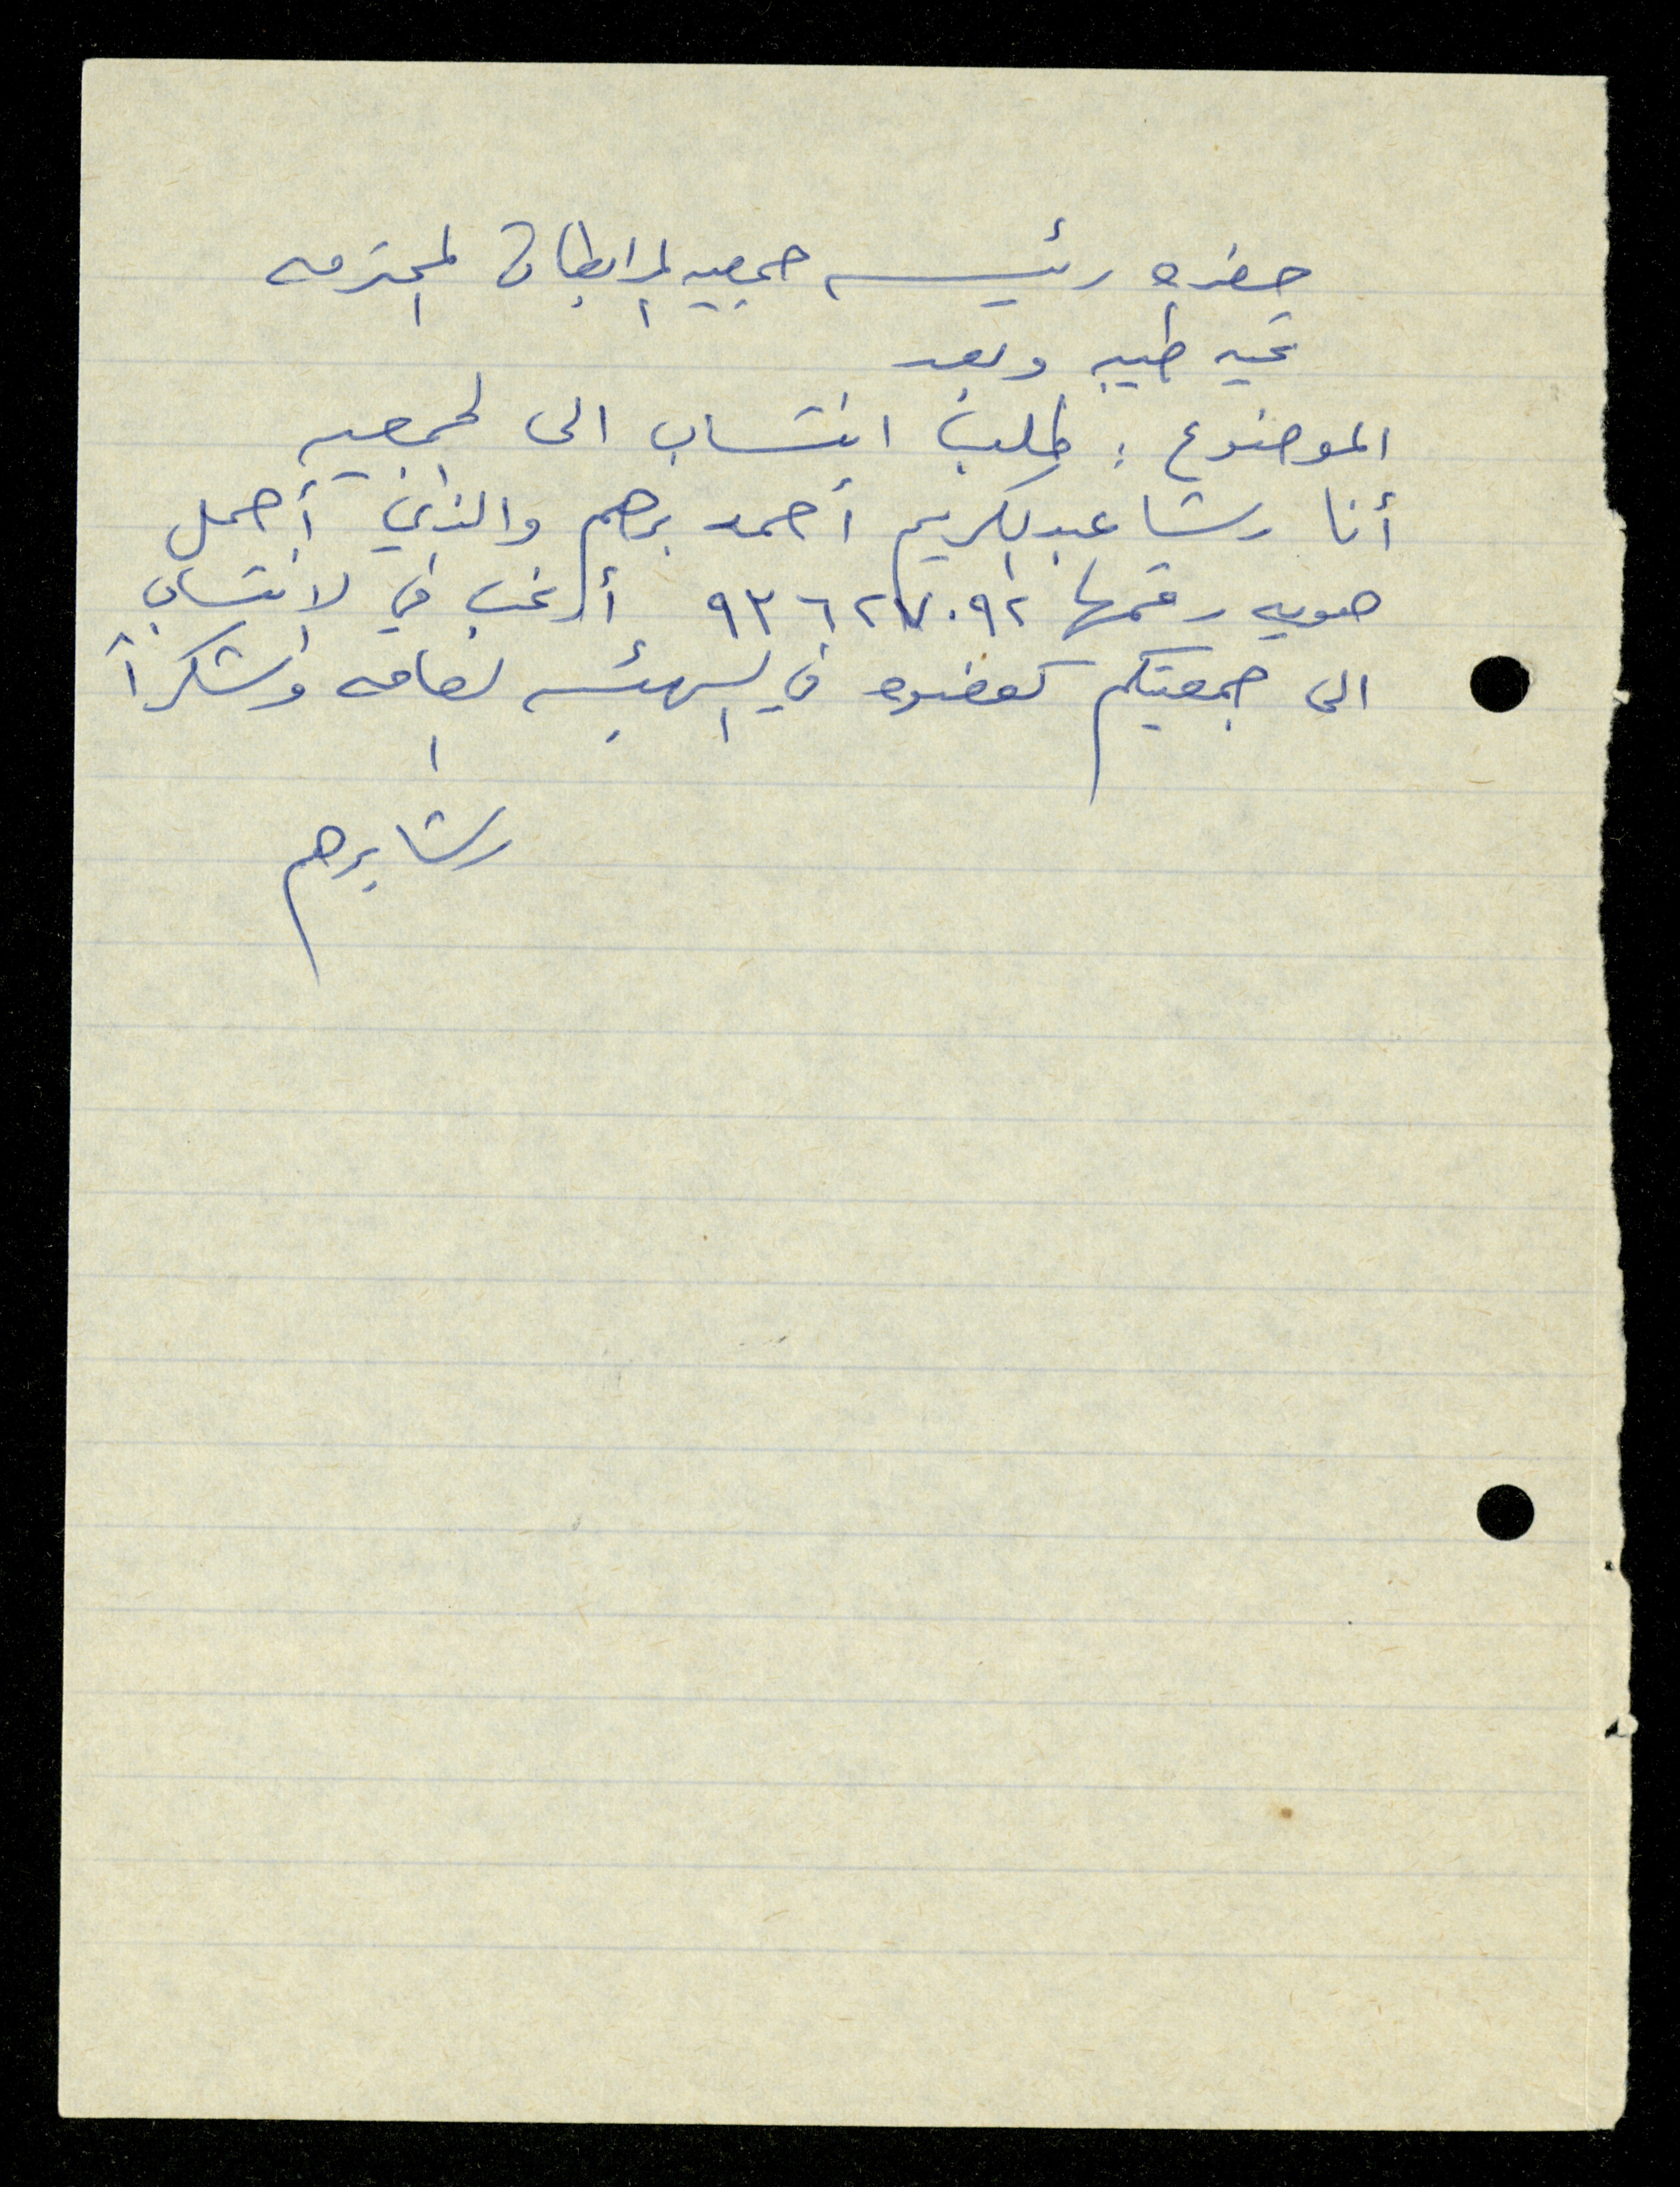 حضره رئيسه جمعيه المرابطات المحترمه
تحيه طيبه وبعد
الموضوع : طلب انتساب الى الجمعيه
أنا رشا عبد الكريم أحمد برهم والذي أحمل
هويه رقمها ٩٣٦٢٧٠٩٢ أرغب في الانتساب
الى جمعيتكم كعضوه في الهيئه العامه وشكراً
رشا برهم